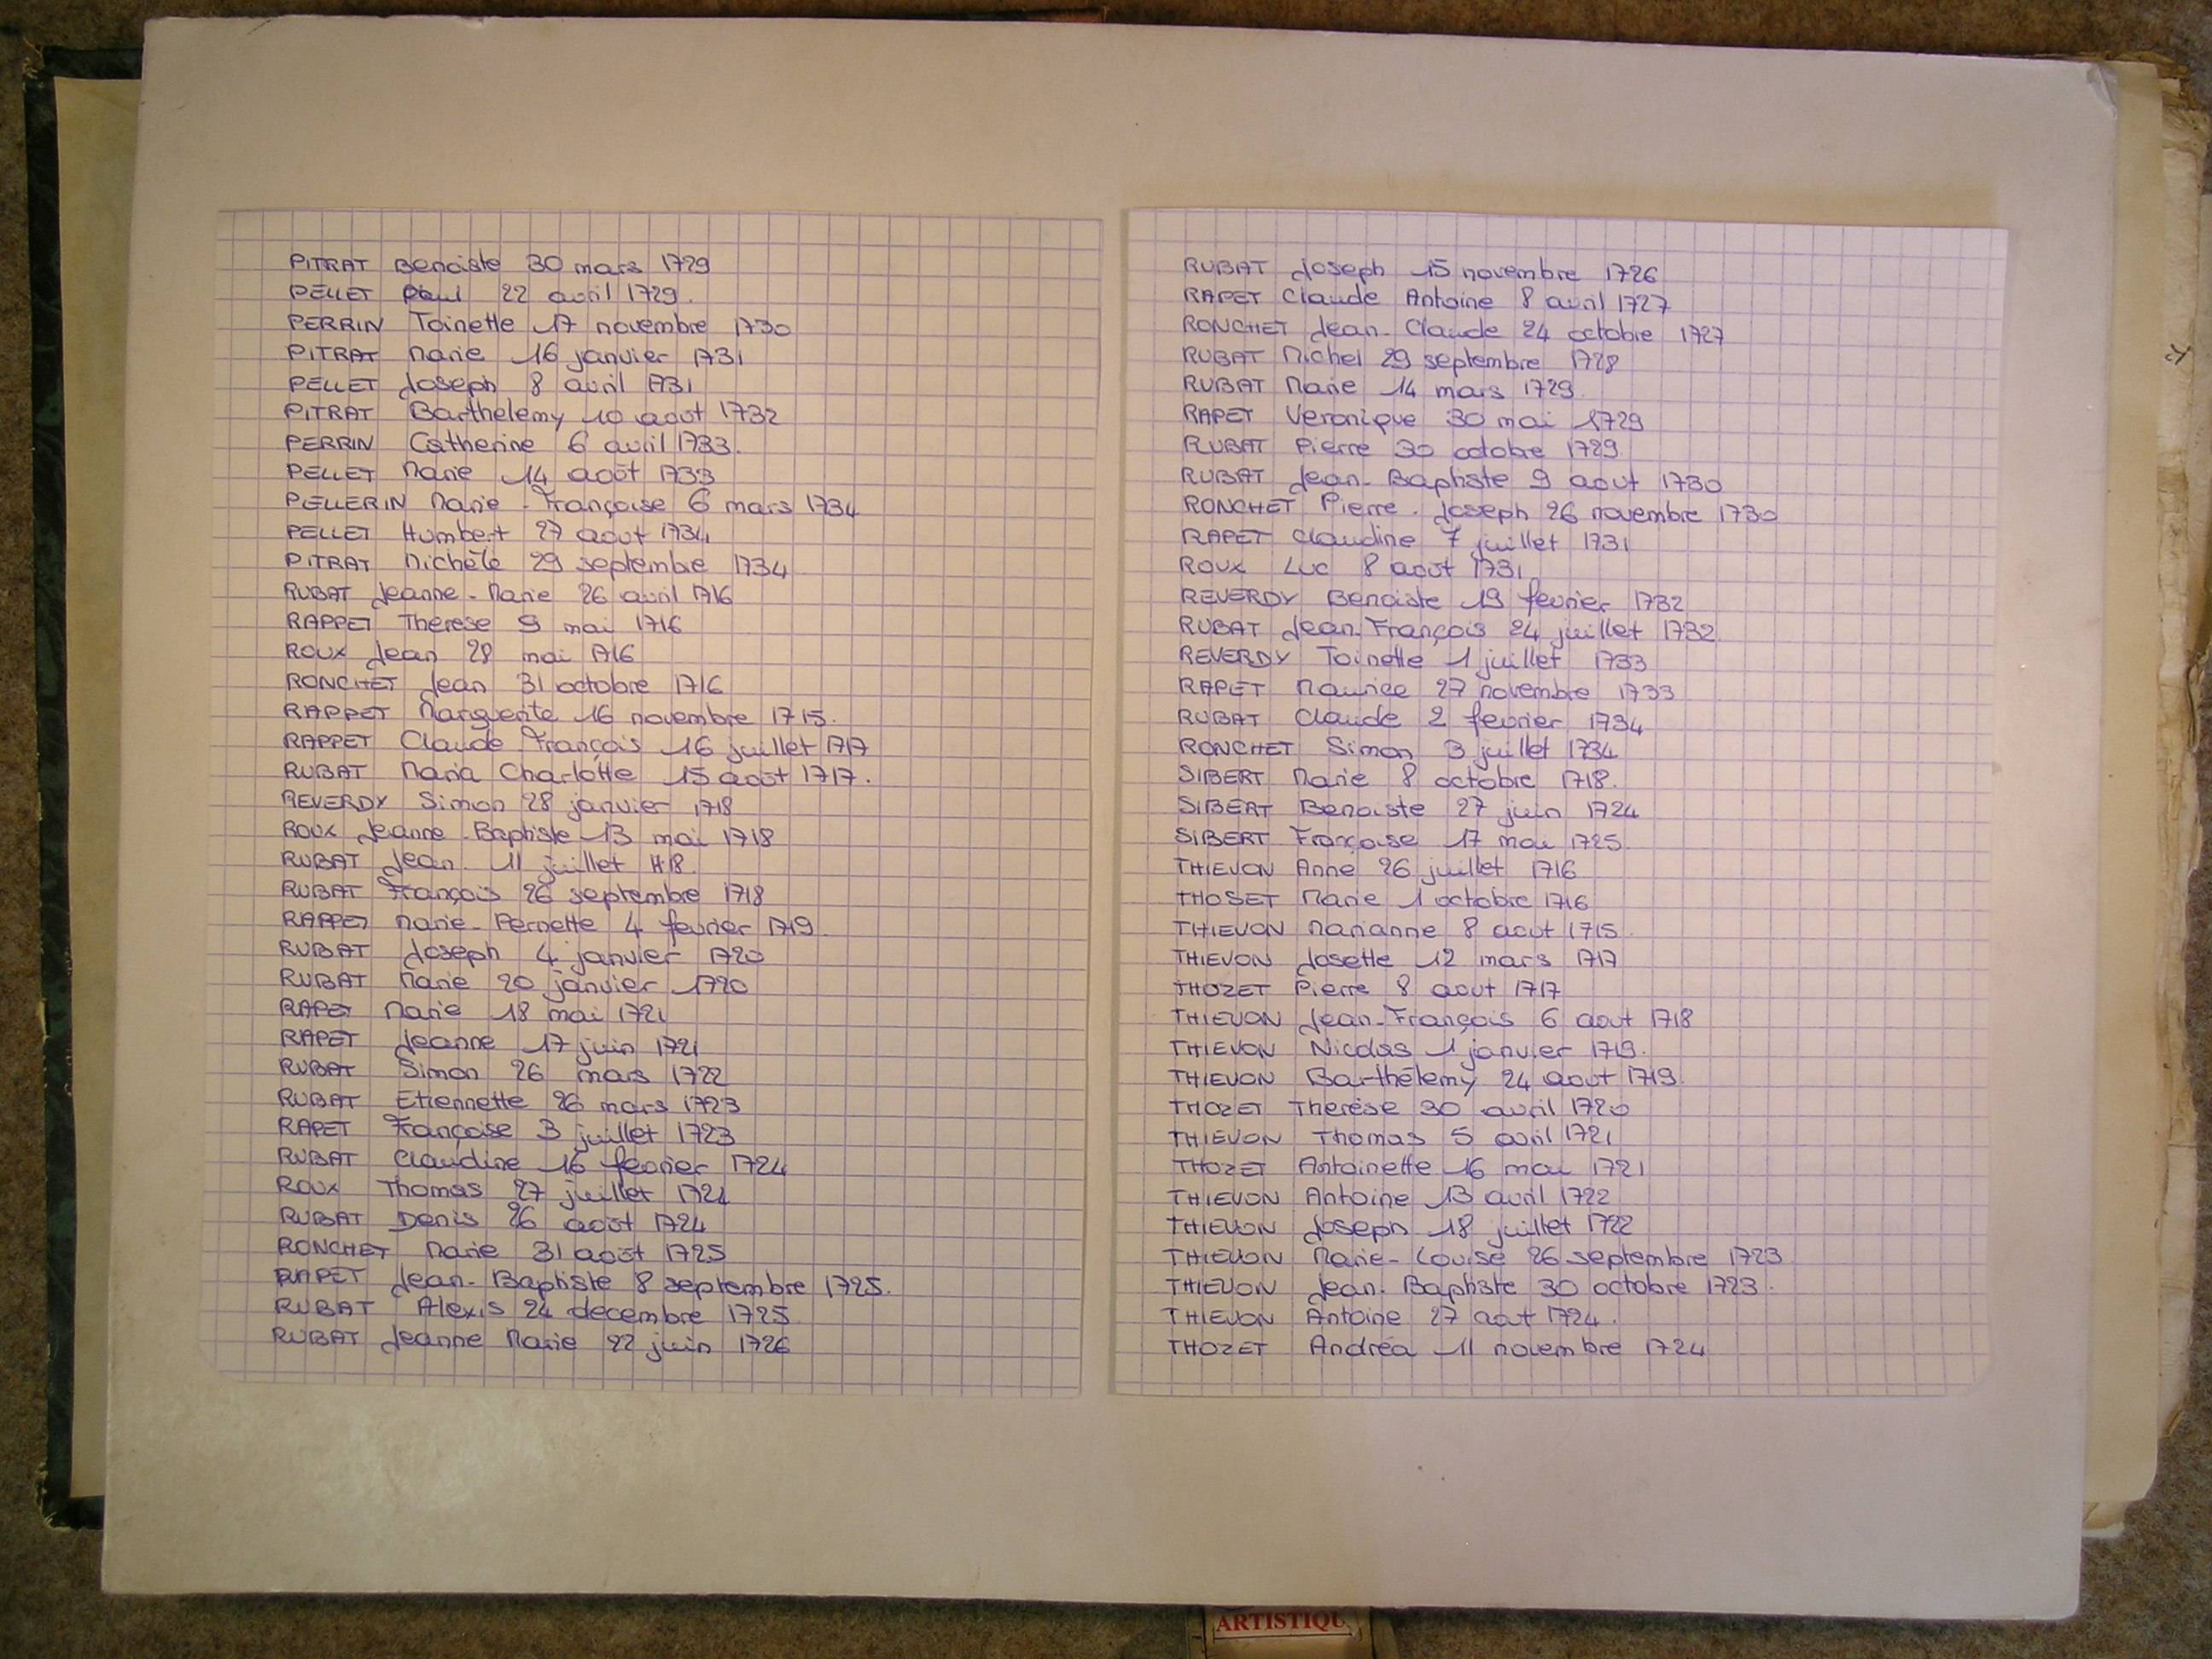 PITRAT Benoiste 30 mars 1729
PELLET Paul 22 avril 1729.
PERRIN Toinette 17 novembre 1730
PITRAT Marie 16 janvier 1731
PELLET Joseph 8 avril 1731
PITRAT Barthelemy 10 août 1732
PERRIN Catherine 6 avril 1733.
PELLET Marie 14 août 1733
PELLERIN Marie-Françoise 6 mars 1734
PELLET Humbert 27 aout 1734
PITRAT Michèle 29 septembre 1734
RUBAT Jeanne-Marie 26 avril 1716
RAPPET Therese 9 mai 1716
ROUX Jean 28 mai 1716
RONCHET Jean 31 octobre 1716
RAPPET Marguerite 16 novembre 1715.
RAPPET Claude François 16 juillet 1717
RUBAT Maria Charlotte 15 août 1717.
REVERDY Simon 28 janvier 1718
ROUX Jeanne-Baptiste 13 mai 1718
RUBAT Jean 11 juillet 1718.
RUBAT François 26 septembre 1718
RAPPET Marie-Pernette 4 fevrier 1719.
RUBAT Joseph 4 janvier 1720
RUBAT Marie 20 janvier 1720
RAPET Marie 18 mai 1721
RAPET Jeanne 17 juin 1721
RUBAT Simon 26 mars 1722
RUBAT Etiennette 26 mars 1723
RAPET Françoise 3 juillet 1723
RUBAT Claudine 16 fevrier 1724
ROUX Thomas 27 juillet 1724
RUBAT Denis 26 août 1724
RONCHET Marie 31 août 1725
RAPET Jean-Baptiste 8 septembre 1725.
RUBAT Alexis 24 decembre 1725
RUBAT Jeanne Marie 22 juin 1726
RUBAT Joseph 15 novembre 1726
RAPET Claude Antoine 8 avril 1727
RONCHET Jean-Claude 24 octobre 1727
RUBAT Michel 29 septembre 1728
RUBAT Marie 14 mars 1729.
RAPET Veronique 30 mai 1729
RUBAT Pierre 30 octobre 1729
RUBAT Jean-Baptiste 9 aout 1730
RONCHET Pierre-Joseph 26 novembre 1730
RAPET Claudine 7 juillet 1731
ROUX Luc 8 août 1731
REVERDY Benoiste 19 fevrier 1732
RUBAT Jean-François 24 juillet 1732
REVERDY Toinette 1 juillet 1733
RAPET Maurice 27 novembre 1733
RUBAT Claude 2 fevrier 1734
RONCHET Simon 3 juillet 1734
SIBERT Marie 8 octobre 1718.
SIBERT Benoiste 27 juin 1724
SIBERT Françoise 17 mai 1725
THIEVON Anne 26 juillet 1716
THOSET Marie 1 octobre 1716
THIEVON Marianne 8 aout 1715.
THIEVON Josette 12 mars 1717
THOZET Pierre 8 aout 1717
THIEVON Jean-François 6 aout 1718
THIEVON Nicolas 1 janvier 1719.
THIEVON Barthélemy 24 aout 1719.
THOZET Therèse 30 avril 1720
THIEVON Thomas 5 avril 1721
THOZET Antoinette 16 mai 1721
THIEVON Antoine 13 avril 1722
THIEVON Joseph 18 juillet 1722
THIEVON Marie-Louise 26 septembre 1723
THIEVON Jean-Baptiste 30 octobre 1723.
THIEVON Antoine 27 aout 1724.
THOZET Andréa 11 novembre 1724
ARTISTIQU